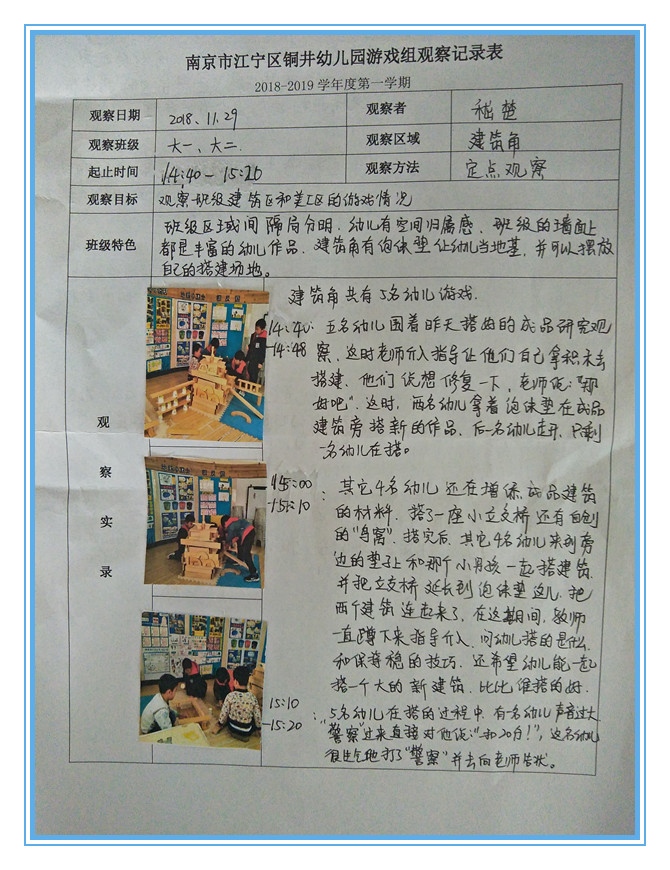 南京市江宁区铜井幼儿园游戏组观察记录表
2018-2019 学年度第一学期
观察日期 2018、11.29 观察者 嵇楚
观察班级 大一、大二. 观察区域 建筑角
起止时间 14:40 - 15:20 观察方法 定点观察
观察目标 观察班级建筑区和美工区的游戏情况
班级区域间隔局分明,幼儿有空间归属感、班级的墙面上
班级特色 都是丰富的幼儿作品,建筑角有泡沫垫让幼儿当地基,并可以摆放
自己的搭建场地。
观察实录
建筑角共有5名幼儿游戏.
14:40-14:48: 五名幼儿围着昨天搭的成品研究观
察,这时老师介入指导让他们自己拿积木去
搭建、他们说想修复一下,老师说:"那
好吧".这时,两名幼儿拿着泡沫垫在成品
建筑旁搭新的作品、后一名幼儿走开,只剩
一名幼儿在搭。
15:00-15:10: 其它4名幼儿还在增添成品建筑
的材料.搭了一座小立交桥还有自创
的"鸟窝".搭完后,其它4名幼儿来到旁
边的垫子上和那个小男孩一起搭建筑,
并把立交桥延长到泡沫垫这儿,把
两个建筑连起来了,在这期间,教师
一直蹲下来指导介入,问幼儿搭的是什么
和保持稳的技巧.还希望幼儿能一起
搭一个大的新建筑.比比谁搭的好.
15:10-15:20: 5名幼儿在搭的过程中.有一名幼儿声音过大
"警察"过来直接对他说:"扣20分!",这名幼儿
很生气地打了"警察"并去向老师告状。